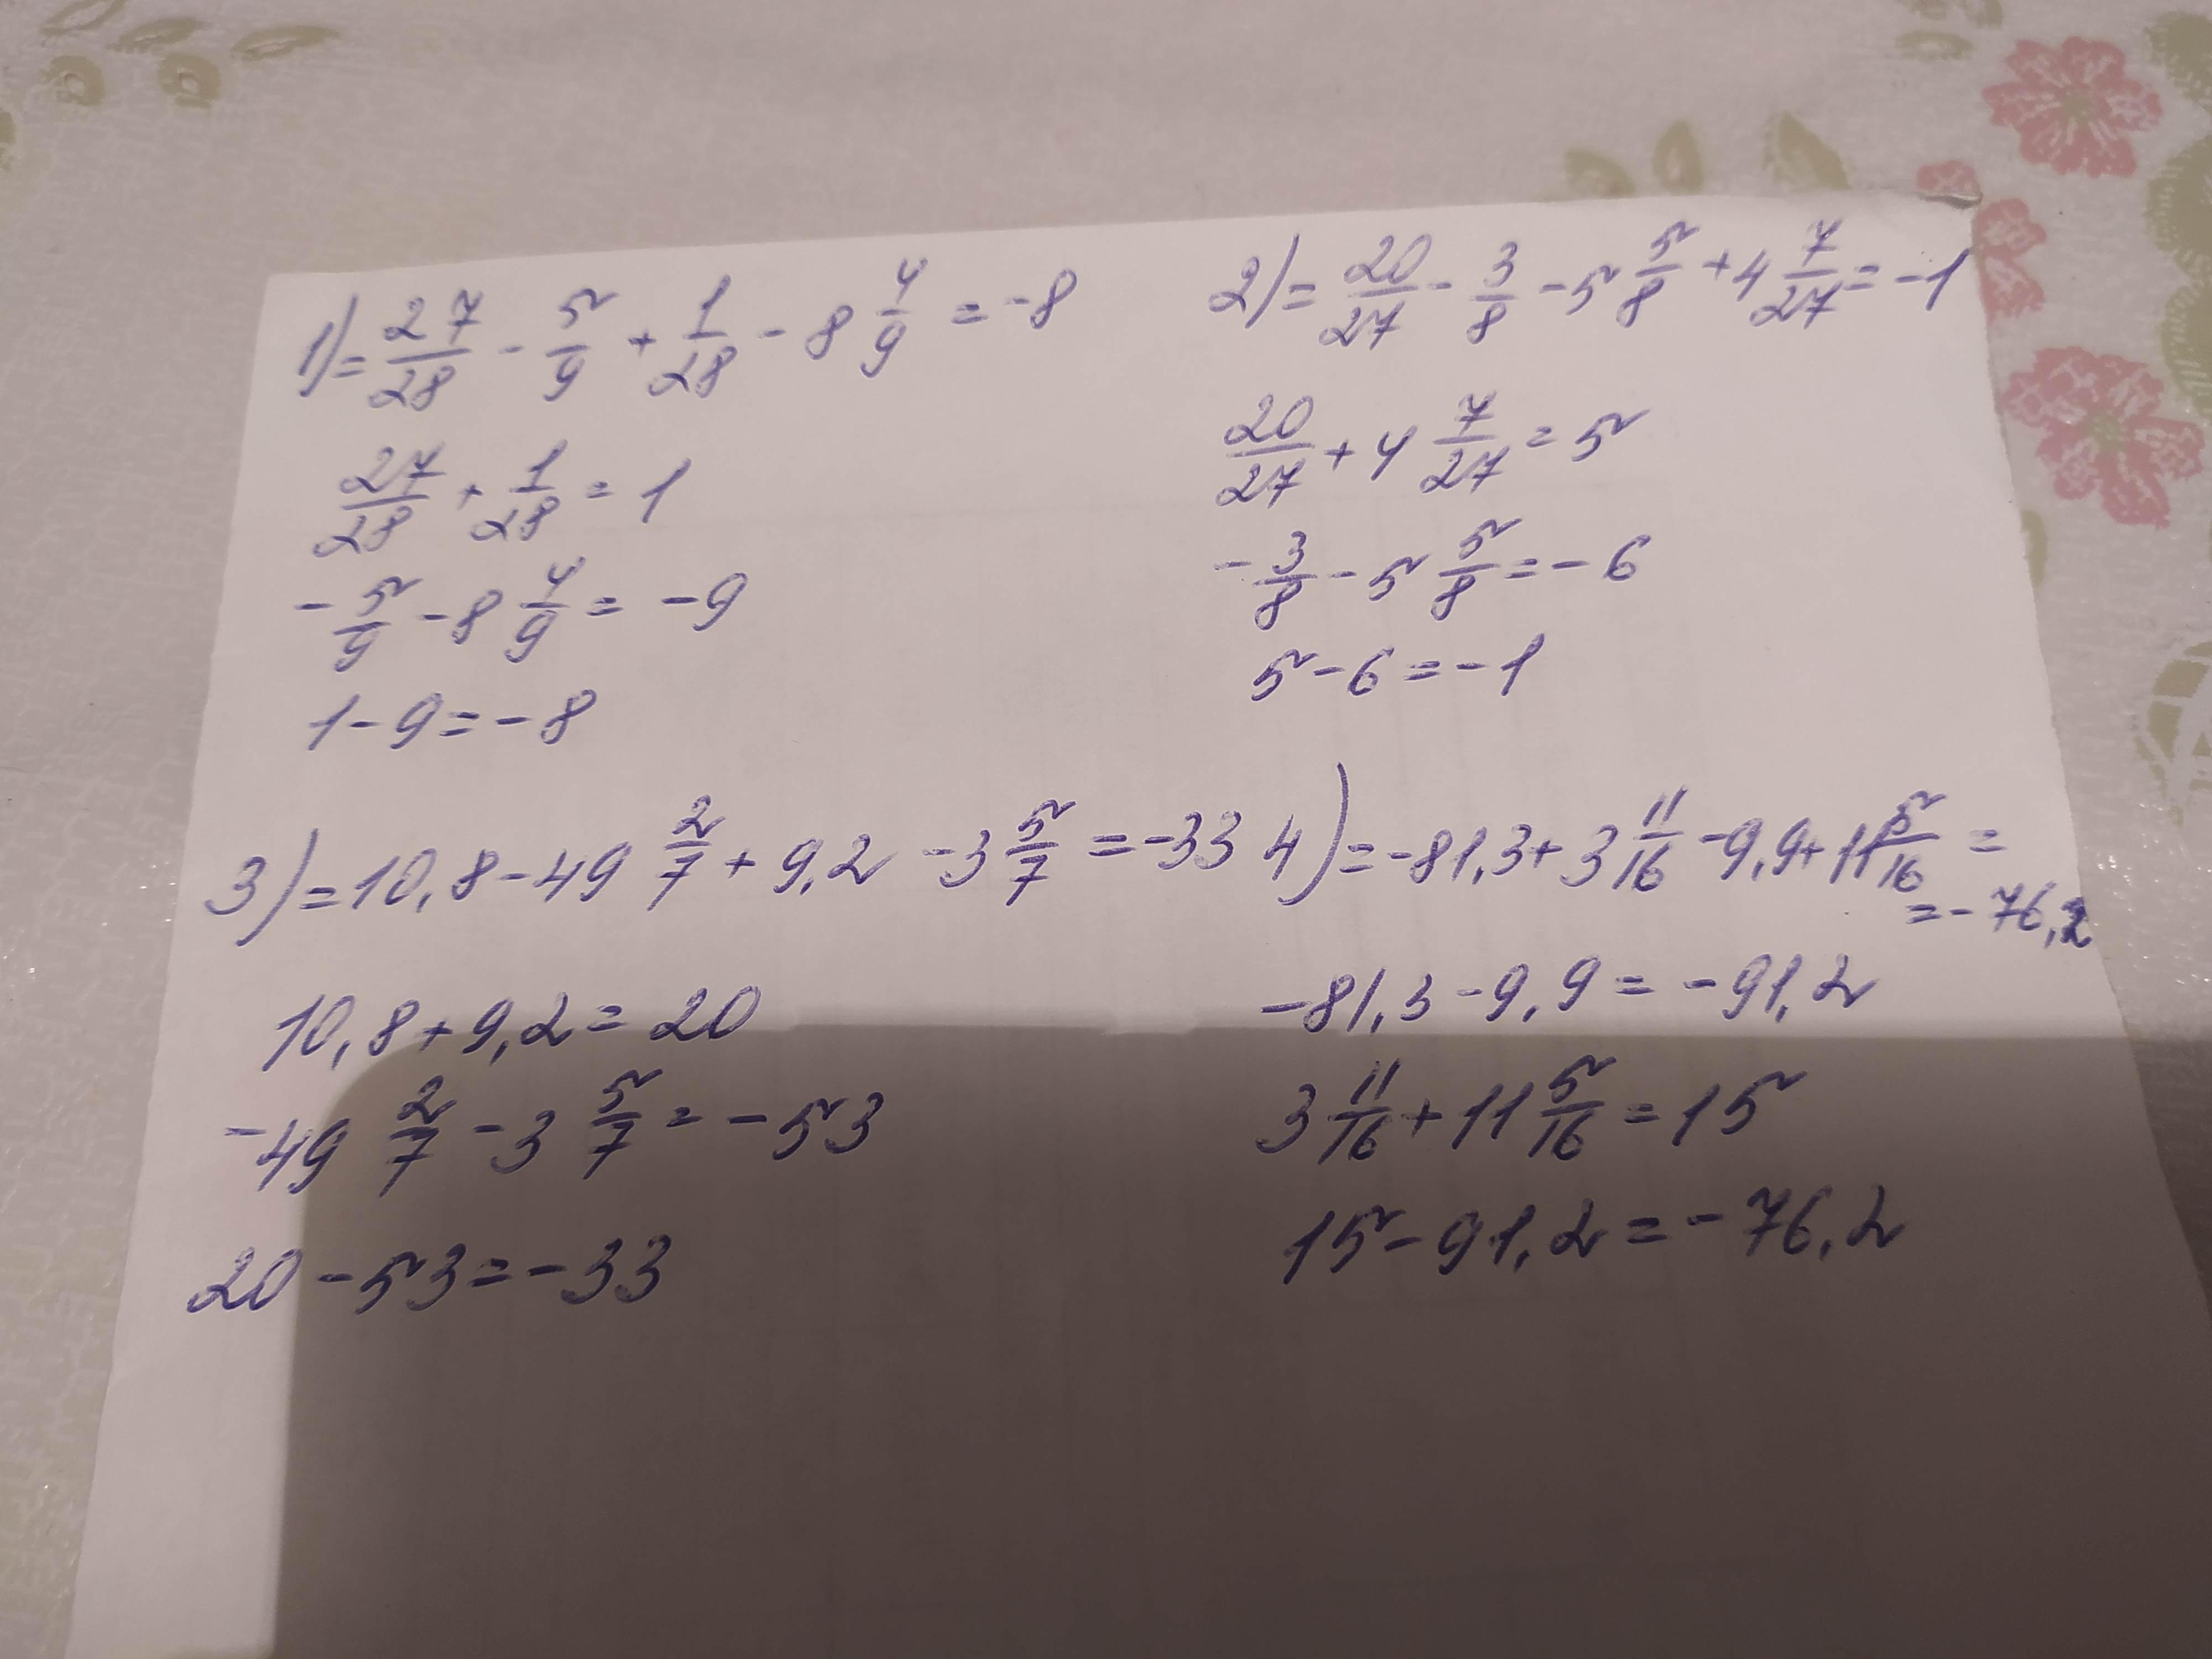 1) = 27/28 - 5/9 + 1/28 - 8 4/9 = -8
27/28 + 1/28 = 1
- 5/9 - 8 4/9 = -9
1 - 9 = -8
2) = 20/27 - 3/8 - 5 5/8 + 4 7/27 = -1
20/27 + 4 7/27 = 5
- 3/8 - 5 5/8 = -6
5 - 6 = -1
3) = 10,8 - 49 2/7 + 9,2 - 3 5/7 = -33
10,8 + 9,2 = 20
-49 2/7 - 3 5/7 = -53
20 - 53 = -33
4) = -81,3 + 3 11/16 - 9,9 + 11 5/16 =
= -76,2
-81,3 - 9,9 = -91,2
3 11/16 + 11 5/16 = 15
15 - 91,2 = -76,2